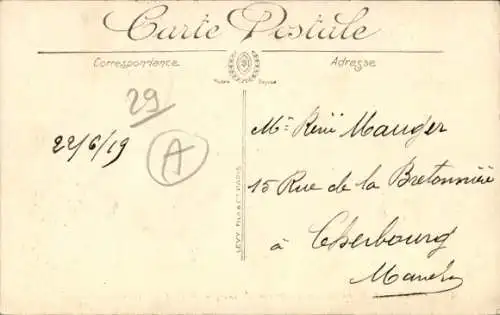 Carte Postale
Correspondance
Adresse
29
22/6/19
A
LEVY FILS & Cie PARIS
Mr René Mauger
15 Rue de la Bretonnière
à Cherbourg
Manche